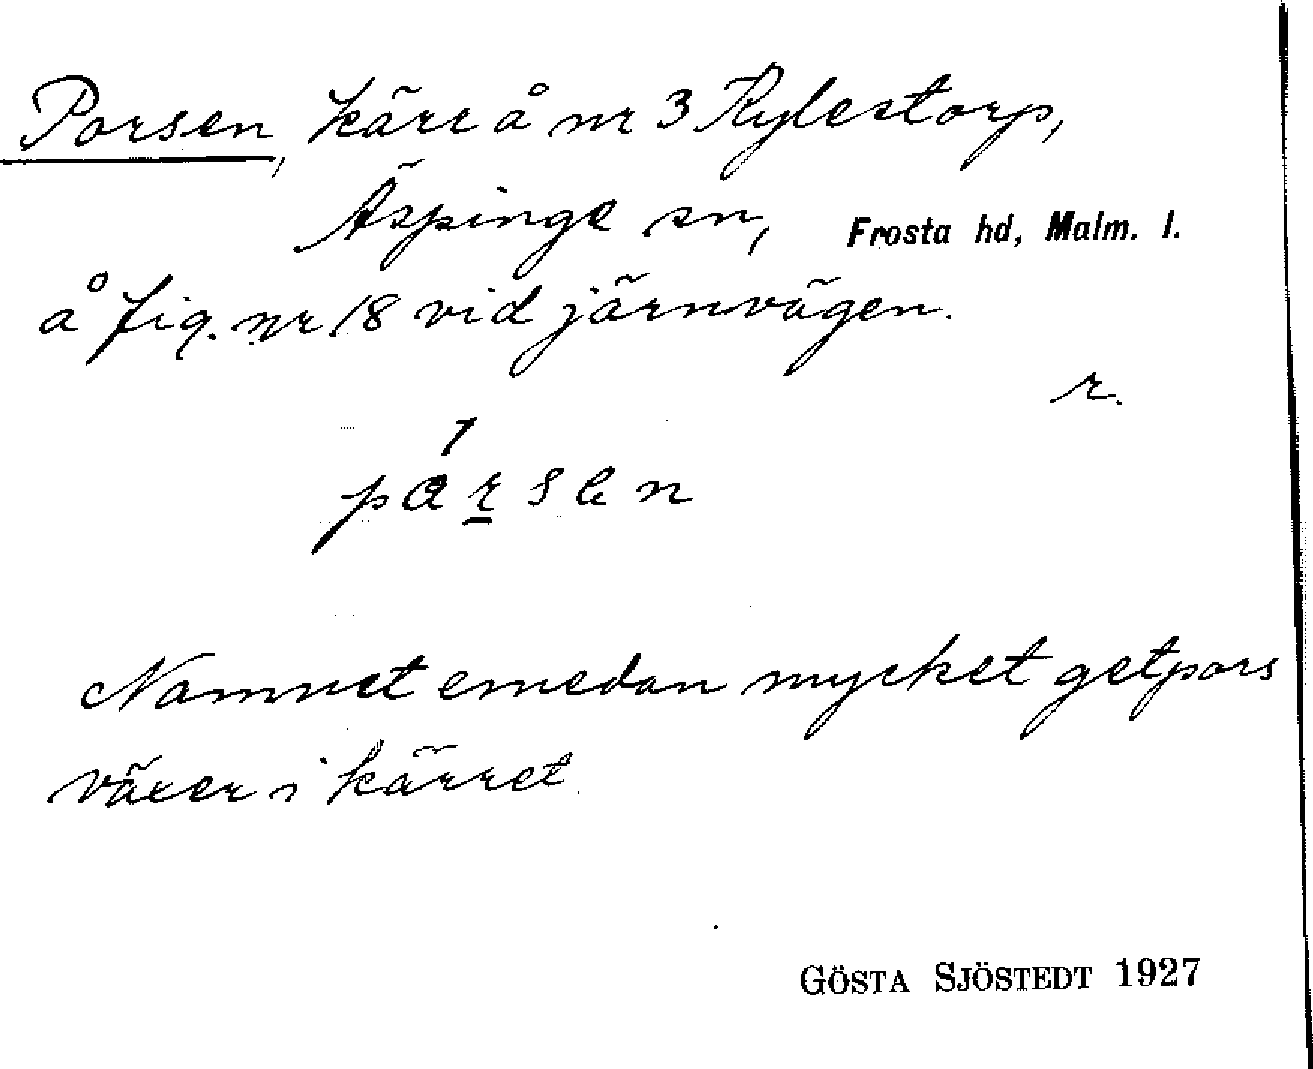 Porsen, kärr å nr 3 Kylestorp,
Äspinge sn, Frosta hd, Malm. l.
å fig. nr 18 vid järnvägen.
r.
pársen
Namnet emedan mycket getpors
växer i kärret.
GÖSTA SJÖSTEDT 1927